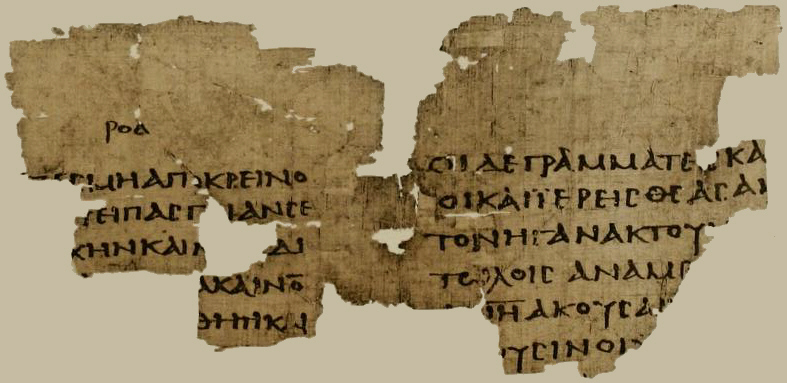 ροδ
ΜΗ ΑΠΟΚΡΕΙΝΟ
ΠΕΙΠΑϹ Π ΙΑΝ ϹΕ
ΧΗΝ ΚΑΙΝ ΔΙ
Α ΚΑΙΝΟ̅
ΘΗΤΙ ΚΑΙ
ΟΙ ΔΕ ΓΡΑΜΜΑΤΕ ΚΑ
ΟΙ ΚΑΙ ΙΕΡΕΙϹ ΘΕΑϹΑΜ
ΤΟΝ ΗΓΑΝΑΚΤΟΥ
ΤΩΛΟΙϹ ΑΝΑ ΜΕ
Ι̅Η̅ ΑΚΟΥϹΑ
ΟΥϹΙΝ ΟΙ